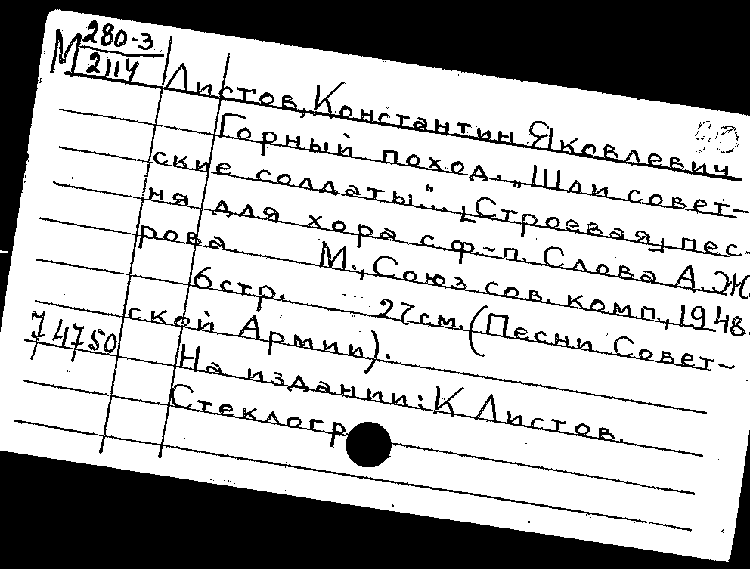 М 280-3
2114
Листов, Константин Яковлевич
Горный поход. „Шли совет-
ские солдаты"... [Строевая] пес-
ня для хора с ф-п. Слова А. Жа
рова. М., Союз сов. комп., 1948.
6 стр. 27 см. (Песни Совет-
ской Армии).
На издании: К Листов.
Стеклогр
74750